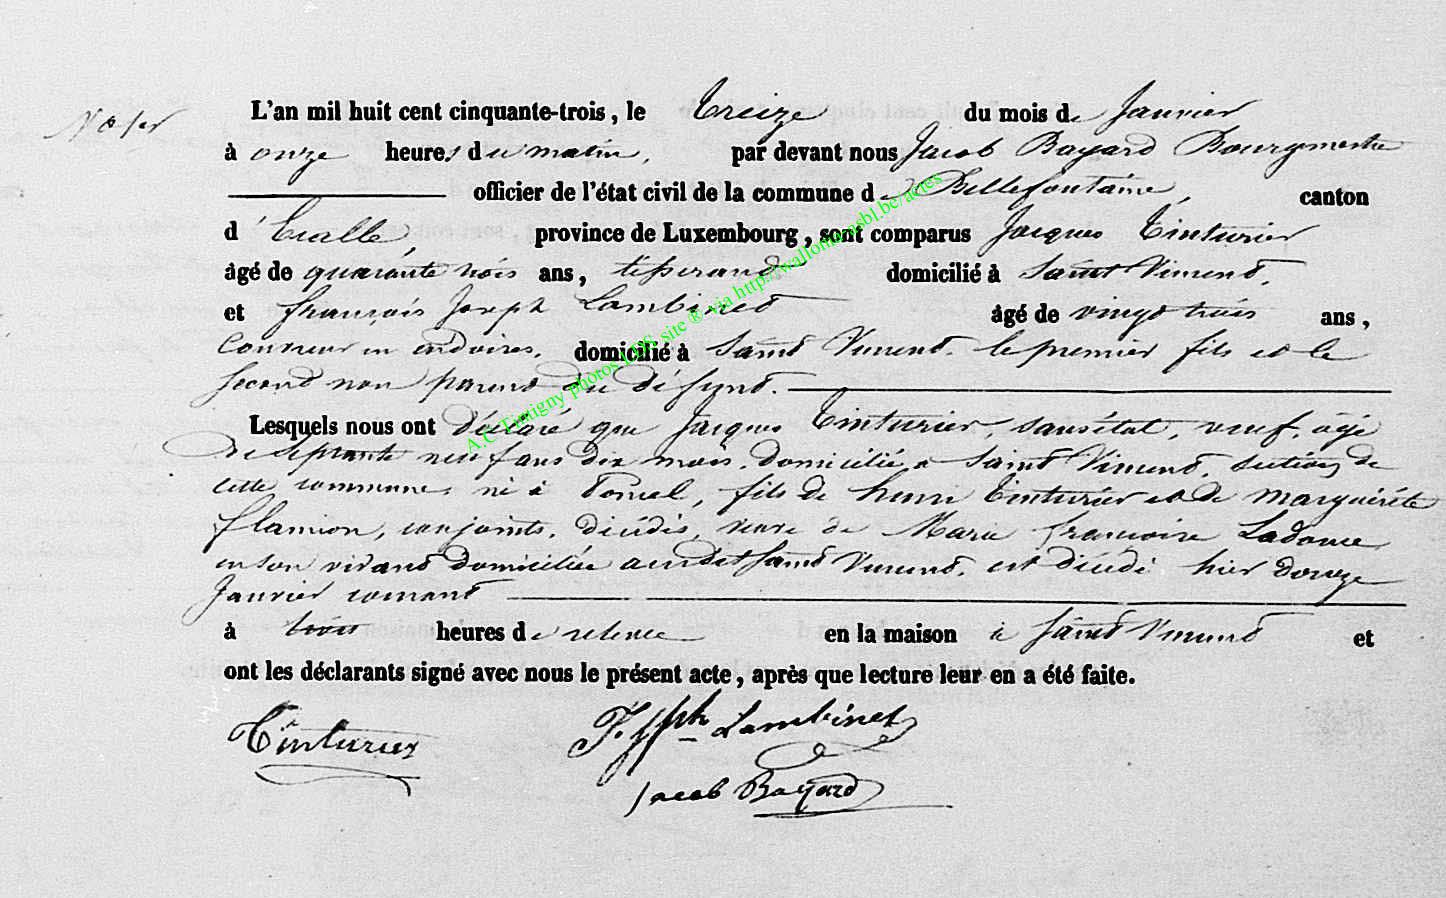 L'an mil huit cent cinquante-trois, le treize du mois de Janvier
à onze heures du matin, par devant nous Jacob Bayard Bourgmestre
officier de l'état civil de la commune de Bellefontaine, canton
d'Etalle, province de Luxembourg, sont comparus Jacques Tinturier
âgé de quarante trois ans, tisserand domicilié à Saint Vincent,
et François Joseph Lambinet âgé de vingt trois ans,
Couvreur en ardoises, domicilié à Saint Vincent. le premier fils et le
second non parent du défunt.
Lesquels nous ont déclaré que Jacques Tinturier, sans état, veuf, âgé
de septante neuf ans dix mois, domicilié à Saint Vincent, section de
cette commune, né à fils de henri Tinturier et de Marguerite
flamion, conjoints, décédés, veuf de Marie françoise Ladouce
en son vivant domiciliée audit Saint Vincent, est décédé hier douze
Janvier courant
à trois heures de relevée en la maison à Saint Vincent et
ont les déclarants signé avec nous le présent acte, après que lecture leur en a été faite.
Tinturier Lambinet
Jacob Bayard
A.C Tintigny photos LDS site ® via http://wallonica.asbl.be/actes